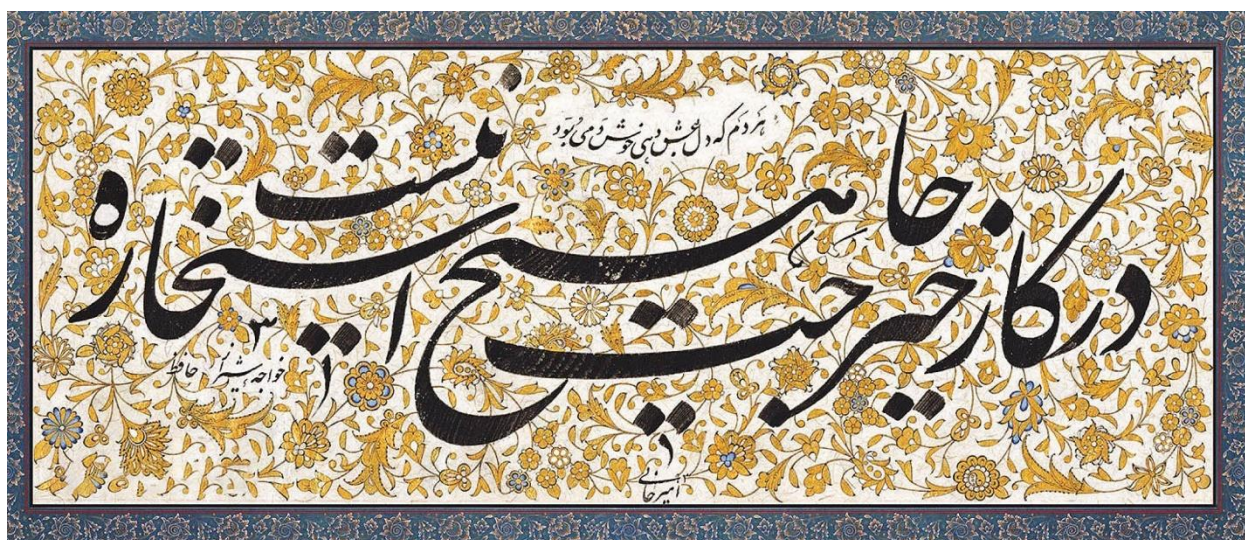 هر دم که دل بعشق دهی خوش دمی بود
در کار خیر حاجت هیچ استخاره نیست
خواجه شیراز حافظ
امیرخانی